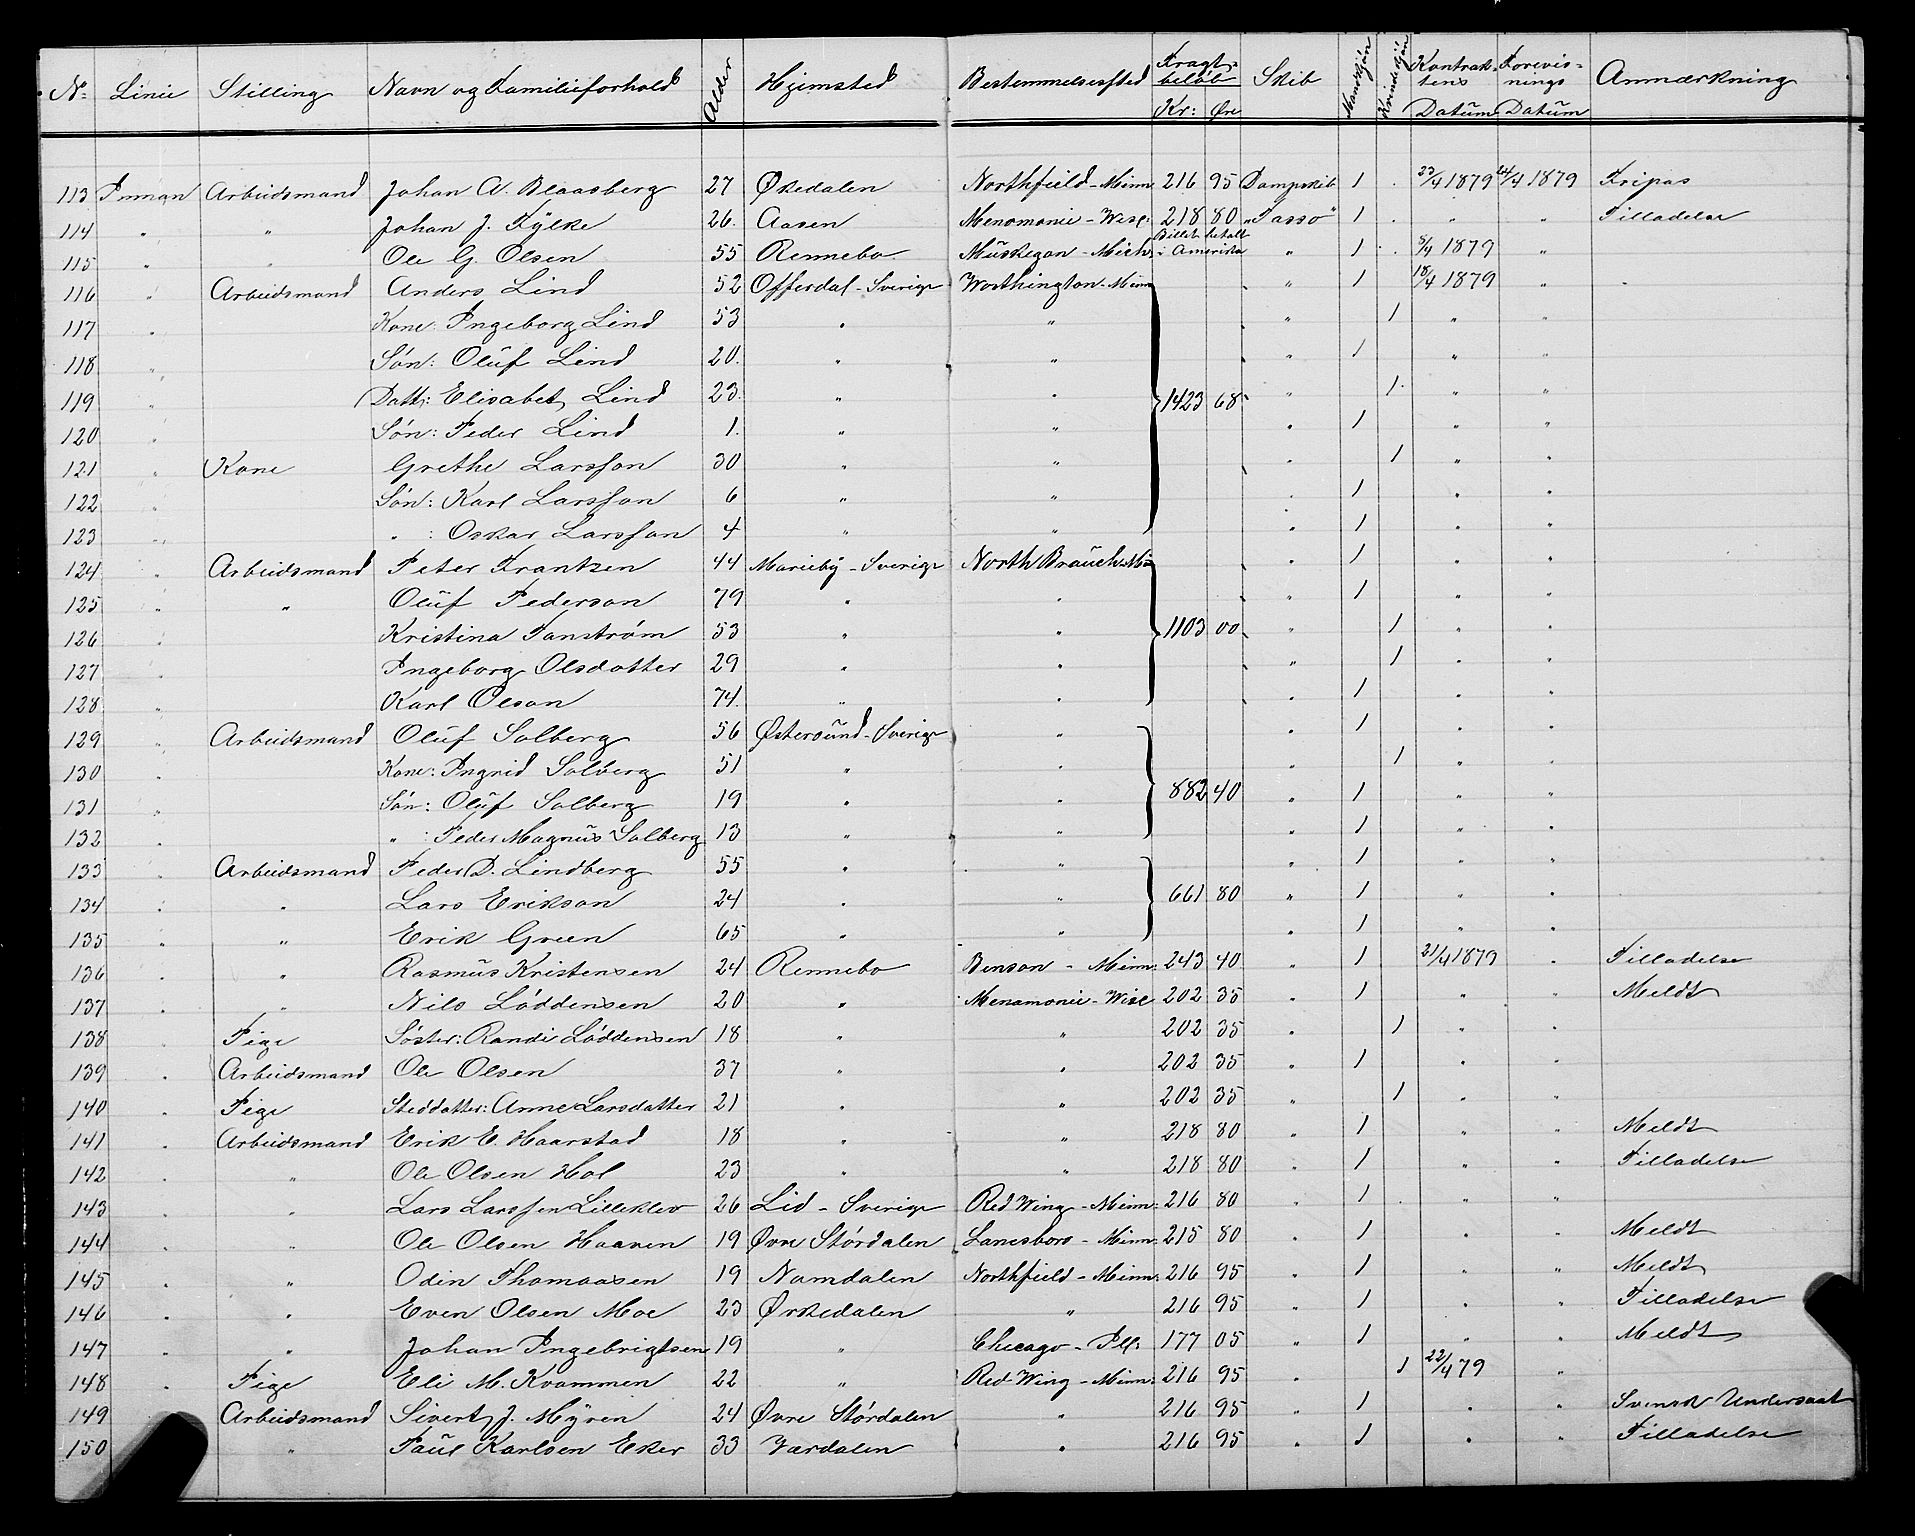 No. Linie Stilling Navn og Familieforhold Alder Hjemsted Bestemmelsessted Fragtbeløb Kr: Øre Skib Mandkjøn Kvindekjøn Kontraktens Datum Forevisnings Datum Anmærkning
113 Inman Arbeidsmand Johan A. Blaasberg 27 Ørkedalen Northfield - Minn 216 95 Dampskib 1 . 23/4 1879 24/4 1879 Fripas
114 " " Johan J. Fylke 26. Aasen Menomonie - Wisc: 218 80 "Tasso" 1 . " " Tilladelse
115 " " Ole G. Olsen 55 Rennebo Muskegon - Mich: Billet betalt i Amerika " 1 . 5/4 1879 "
116 " Arbeidsmand Anders Lind 52 Offerdal - Sverige Worthington - Minn " 1 18/4 1879 " .
117 " Kone: Ingeborg Lind 53 " " " 1 " "
118 " Søn: Oluf Lind 20. " " " 1 " "
119 " Datt: Elisabet Lind 23. " " 1423 68 " 1 " "
120 " Søn: Peder Lind 1. " " " 1 " "
121 " Kone Grethe Larsson 30 " " " 1 " "
122 " Søn: Karl Larsson 6 " " " 1 " "
123 " " : Oskar Larsson 4 " " " 1 " "
124 " Arbeidsmand Peter Frantzen 44 Marieby - Sverige North Brauch - Mi " 1 " "
125 " " Oluf Pederson 79 " " " 1 " "
126 " Kristina Fanstrøm 53 " " 1103 00 " 1 " "
127 " Ingeborg Olsdatter 29 " " " 1 " "
128 " Karl Olson 74. " " " 1 " "
129 " Arbeidsmand Oluf Solberg 56 Østersund - Sverige " " 1 " "
130 " Kone: Ingrid Solberg 51 " " " 1 " "
131 " Søn: Oluf Solberg 19 " " 882 40 " 1 " "
132 " " : Peder Magnus Solberg 13 " " " 1 " "
133 " Arbeidsmand Peder D. Lindberg 55 " " " 1 " "
134 " " Lars Erikson 24 " " 661 80 " 1 " "
135 " " Erik Green 65 " " " 1 " "
136 " " Rasmus Kristensen 24 Rennebo Benson - Minn: 243 40 " 1 21/4 1879 " Tilladelse
137 " " Nils Løddensen 20 " Menomonie - Wisc 202 35 " 1 " " Meldt
138 " Pige Søster: Randi Løddensen 18 " " 202 35 " 1 " "
139 " Arbeidsmand Ole Olsen 37 " " 202 35 " 1 " "
140 " Pige Steddatter: Anne Larsdatter 21 " " 202 35 " 1 " "
141 " Arbeidsmand Erik E. Haarstad 18 " " 218 80 " 1 " " Meldt
142 " " Ole Olsen Hol 23 " " 218 80 " 1 " " Tilladelse
143 " " Lars Larssen Lilleklev 26 Lid - Sverige Red Wing - Minn: 216 80 " 1 . " "
144 " " Ole Olsen Haaven 19 Øvre Størdalen Lanesboro - Minn: 215 80 " 1 " " Meldt
145 " " Odin Thomassen 19 Namdalen Northfield - Minn: 216 95 " 1 " " Meldt
146 " " Even Olsen Moe 23 Ørkedalen " 216 95 " 1 " " Tilladelse
147 " " Johan Ingebrigtsen 19 " Chicago - Ill: 177 05 " 1 " " Meldt
148 " Pige Eli M. Kvammen 22 " Red Wing - Minn: 216 95 " 1 22/4 79 "
149 " Arbeidsmand Sivert J. Myren 24 Øvre Størdalen " 216 95 " 1 " " Svensk Undersaat
150 " Paul Karlsen Eker 33 Værdalen " 216 95 " 1 " " Tilladelse